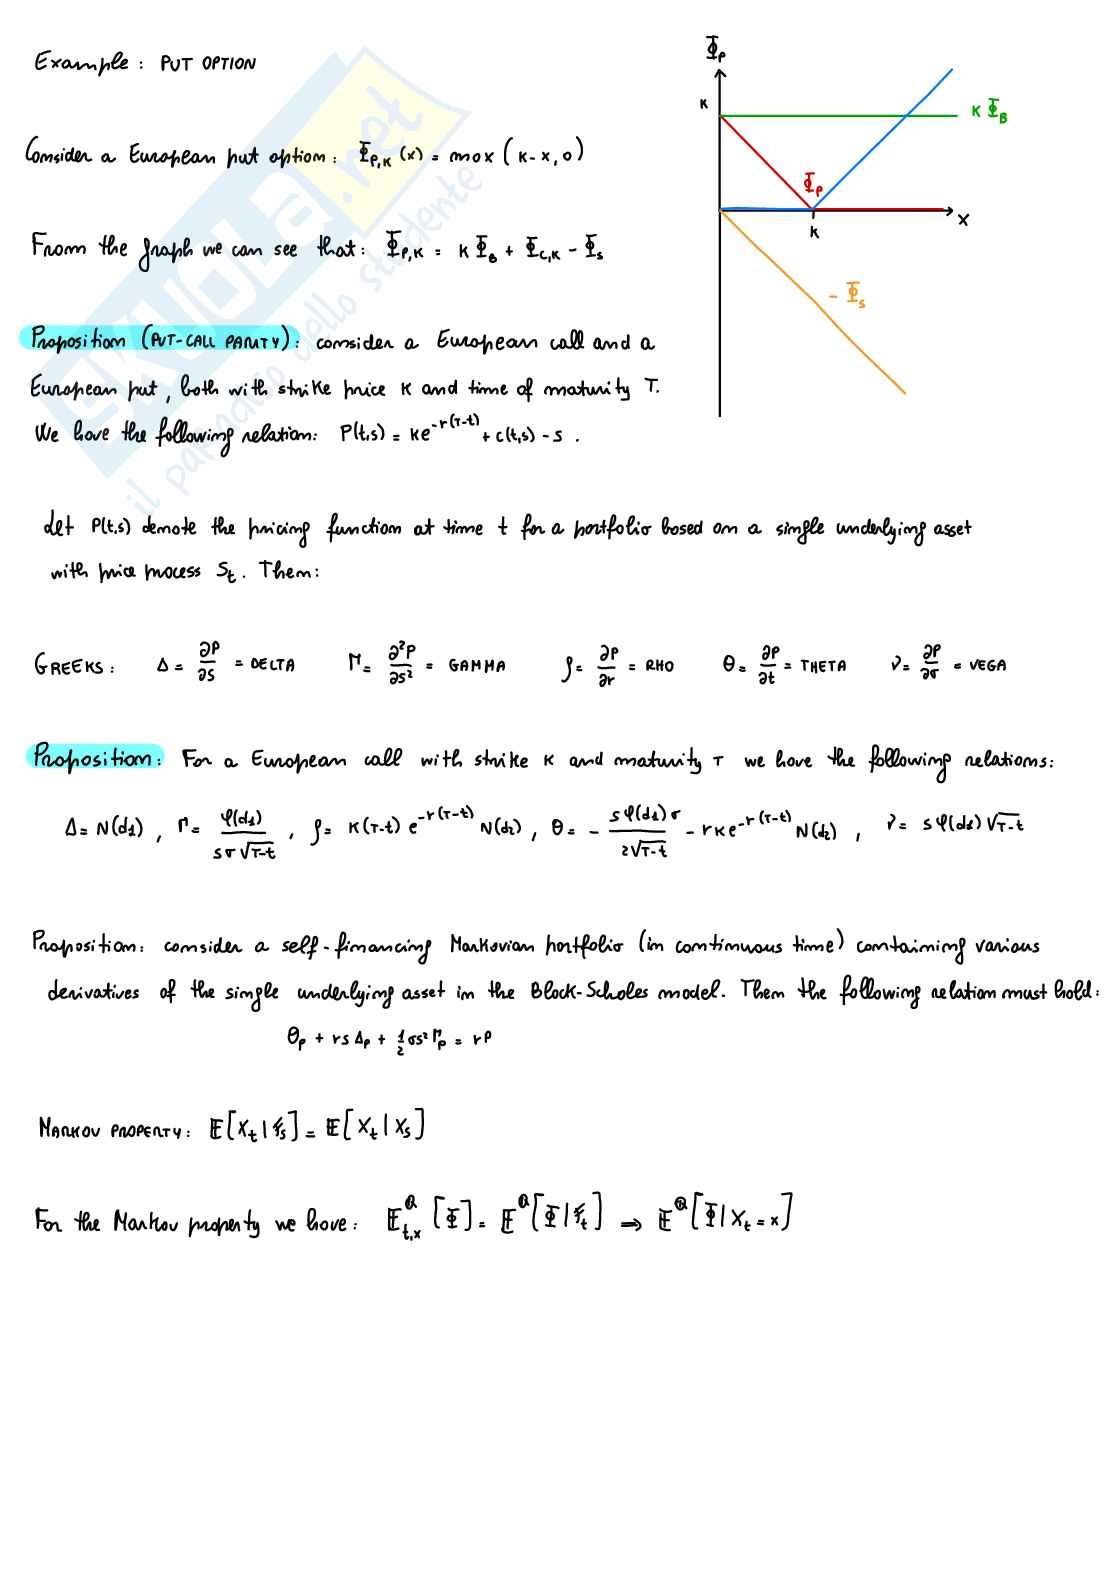 Example: PUT OPTION
Consider a European put option: Φ_{P,K}(x) = max(K-x, 0)
From the graph we can see that: Φ_{P,K} = K Φ_B + Φ_{C,K} - Φ_S
Φ_P
K
K Φ_B
Φ_P
K
X
- Φ_S
Proposition (PUT-CALL PARITY): consider a European call and a
European put, both with strike price K and time of maturity T.
We have the following relation: P(t,s) = Ke^{-r(T-t)} + c(t,s) - s.
Let P(t,s) denote the pricing function at time t for a portfolio based on a single underlying asset
with price process S_t. Then:
GREEKS: Δ = ∂P/∂S = DELTA Γ = ∂²P/∂S² = GAMMA ρ = ∂P/∂r = RHO θ = ∂P/∂t = THETA ν = ∂P/∂σ = VEGA
Proposition: For a European call with strike K and maturity T we have the following relations:
Δ = N(d₁), Γ = φ(d₁)/(sσ√T-t), ρ = K(T-t) e^{-r(T-t)} N(d₂), θ = - sφ(d₁)σ/(2√T-t) - rKe^{-r(T-t)} N(d₂), ν = sφ(d₁)√T-t
Proposition: consider a self-financing Markovian portfolio (in continuous time) containing various
derivatives of the single underlying asset in the Black-Scholes model. Then the following relation must hold:
θ_P + rsΔ_P + 1/2 σs²Γ_P = rP
MARKOV PROPERTY: 𝔼[X_t | ℱ_s] = 𝔼[X_t | X_s]
For the Markov property we have: 𝔼^Q_{t,x}[Φ] = 𝔼^Q[Φ | ℱ_t] ⇒ 𝔼^Q[Φ | X_t = x]
SKUOLA.net
il paradiso dello studente